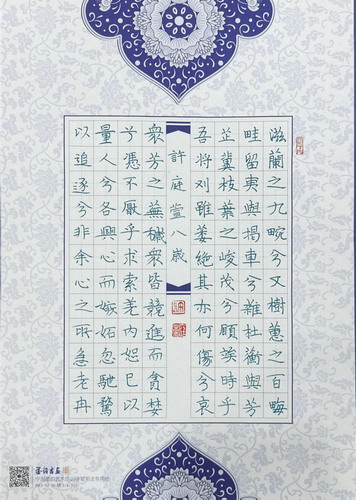 滋蘭之九畹兮又樹蕙之百畮
畦留夷與揭車兮雜杜衡與芳
芷冀枝葉之峻茂兮願竢時乎
吾將刈雖萎絕其亦何傷兮哀
許庭萱八歲
衆芳之蕪穢衆皆競進而貪婪
兮憑不厭乎求索羌內恕己以
量人兮各興心而嫉妒忽馳騖
以追逐兮非余心之所急老冉